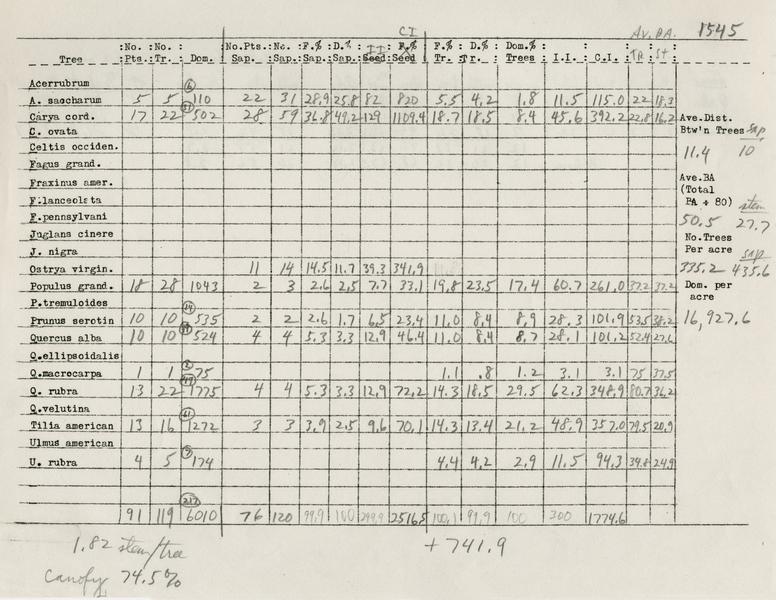 1545
CI Av. BA.
:No. :No. : :No.Pts.:No. :F.% :D.% :II :F.% :F.% : D.% :Dom.% : : :TR :St
Tree :Pts.:Tr. : Dom. Sap. :Sap.:Sap.:Sap.:Seed:Seed Tr. :Tr. :Trees : I.I. : C.I. :
Acerrubrum 6
A. saccharum 5 5 110 22 31 28.9 25.8 82 820 5.5 4.2 1.8 11.5 115.0 22 18.3
Carya cord. 17 22 502 28 59 36.8 49.2 129 1109.4 18.7 18.5 8.4 45.6 392.2 22.8 16.2
C. ovata
Celtis occiden.
Fagus grand.
Fraxinus amer.
F.lanceolata
F.pennsylvani
Juglans cinere
J. nigra
Ostrya virgin. 11 14 14.5 11.7 39.3 341.9
Populus grand. 18 28 1043 2 3 2.6 2.5 7.7 33.1 19.8 23.5 17.4 60.7 261.0 37.2 37.2
P.tremuloides 14
Prunus serotin 10 10 535 2 2 2.6 1.7 6.5 23.4 11.0 8.4 8.9 28.3 101.9 53.5 38.2
Quercus alba 10 10 524 4 4 5.3 3.3 12.9 46.4 11.0 8.4 8.7 28.1 101.2 52.4 27.6
Q.ellipsoidalis
Q.macrocarpa 1 1 2 75 1.1 .8 1.2 3.1 3.1 75 37.5
Q. rubra 13 22 49 1775 4 4 5.3 3.3 12.9 72.2 14.3 18.5 29.5 62.3 348.9 80.7 36.2
Q.velutina
Tilia american 13 16 61 1272 3 3 3.9 2.5 9.6 70.1 14.3 13.4 21.2 48.9 357.0 79.5 20.9
Ulmus american
U. rubra 4 5 7 174 4.4 4.2 2.9 11.5 94.3 34.8 24.9
217
91 119 6010 76 120 99.9 100 299.9 2516.5 100.1 99.9 100 300 1774.6
Ave.Dist.
Btw'n Trees sap
11.4 10
Ave.BA
(Total
BA ÷ 80) stem
50.5 27.7
No.Trees
Per acre sap
335.2 435.6
Dom. per
acre
16,927.6
1.82 stem/tree
+741.9
Canopy 74.5%